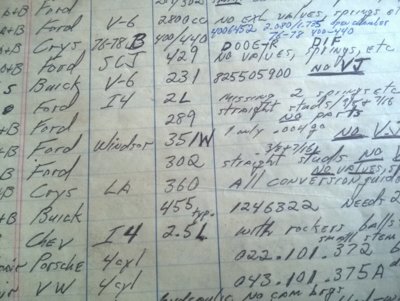 Ford 302
A+B Ford V-6 2800cc No EXh. VALVES, SPRINGS etc
A+B Crys 76-78 B 400/440 4006452 2.080/1.775 open chamber 76-78 400/440
Ford SCJ 429 D00E-R DIF NO VALVES, SPRINGS, etc
S Buick V-6 231 825505900 NO VJ
Ford I4 2L Missing 2 springs etc
A+B Ford 289 straight studs 3/8 + 7/16 NO parts
Ford Windsor 351W 1 only .0049 NO VJ
+B Ford 302 straight studs 3/8 + 7/16 NO VALVES, s
+B Crys LA 360 All conversion guides
Buick 455 typ. 1246322 Needs 2
+B CHEV I4 2.5L with rockers balls small stem
Porsche 4cyl 022.101.372 6
VW 4cyl 043.101.375A
hydraulic No CAM brgs